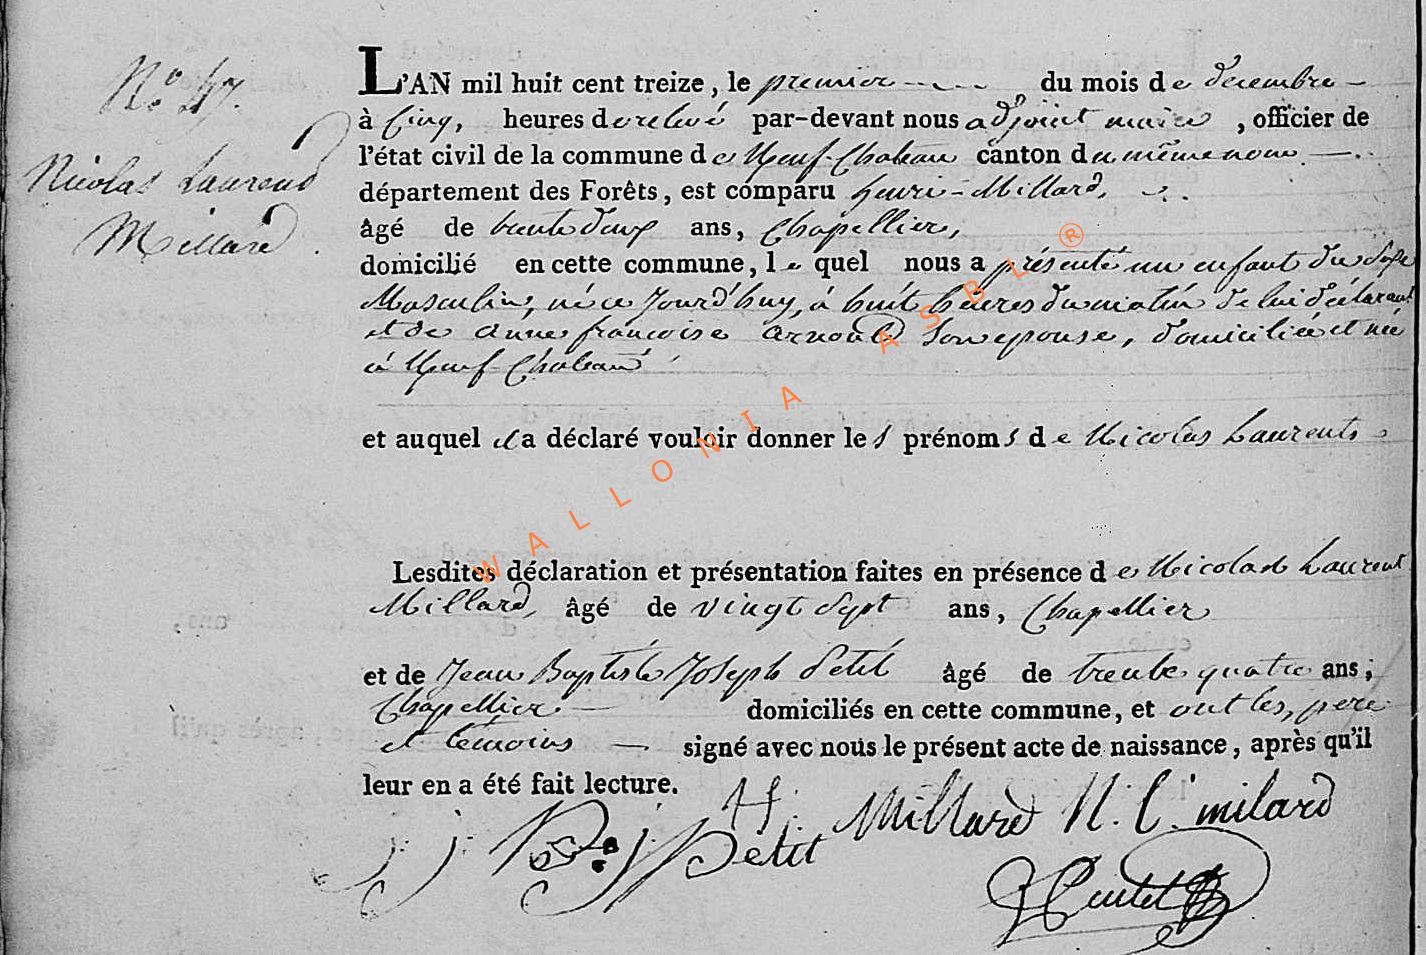 N.o 47.
Nicolas Laurend
Millard.
L'AN mil huit cent treize, le premier du mois de decembre
à Cinq, heures de relevé par-devant nous adjoint maire, officier de
l'état civil de la commune de Neuf-Chateau canton du même nom
département des Forêts, est comparu henri-Millard,
âgé de trente deux ans, Chapellier,
domicilié en cette commune, le quel nous a présenté un enfant du Sexe
Masculin, né ce Jourd'huy, à huit heures du matin de lui déclarant
et de anne francoise arnould Son epouse, domiciliée et née
à Neuf-Chateau
et auquel il a déclaré vouloir donner les prénoms de Nicolas Laurent
Lesdites déclaration et présentation faites en présence de Nicolas Laurent
Millard, âgé de vingt Sept ans, Chapellier
et de Jean Baptiste Joseph Petit âgé de trente quatre ans,
Chapellier domiciliés en cette commune, et ont les, pere
et temoins signé avec nous le présent acte de naissance, après qu'il
leur en a été fait lecture.
H. Millard N. L. milard
j. Bte. j. Petit
WALLONIA ASBL ®